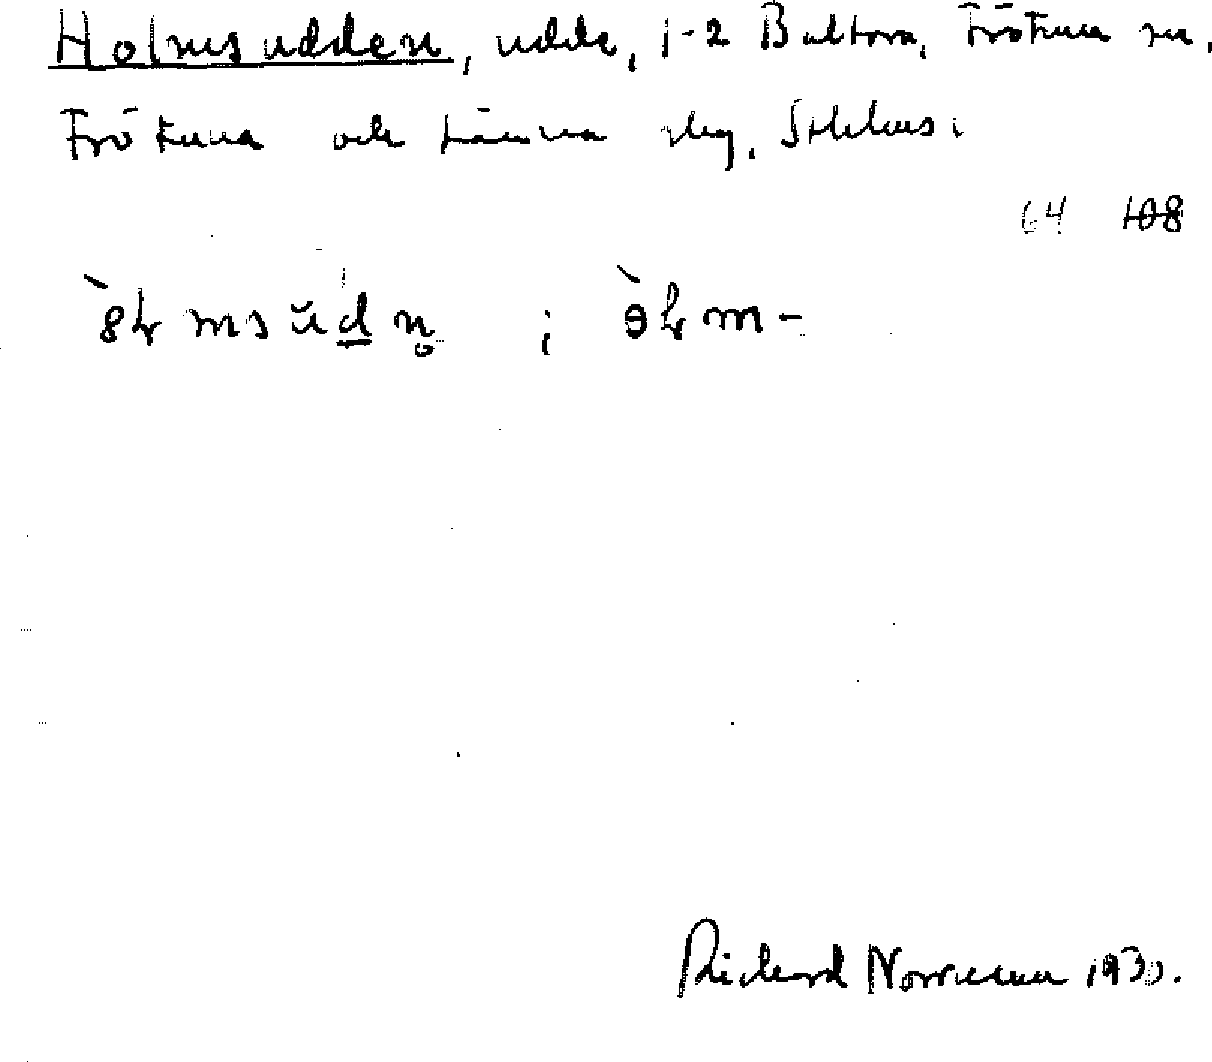 Holmsudden, udde, 1-2 Baltora, Frötuna sn,
Frötuna och Länna skg, Sthlms.
64 108
Richard Norrman 1930.